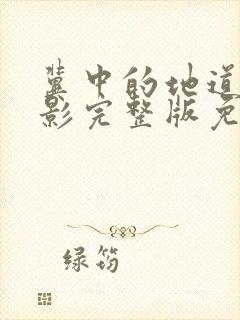 冀中的地道
影完整版免
绿筠